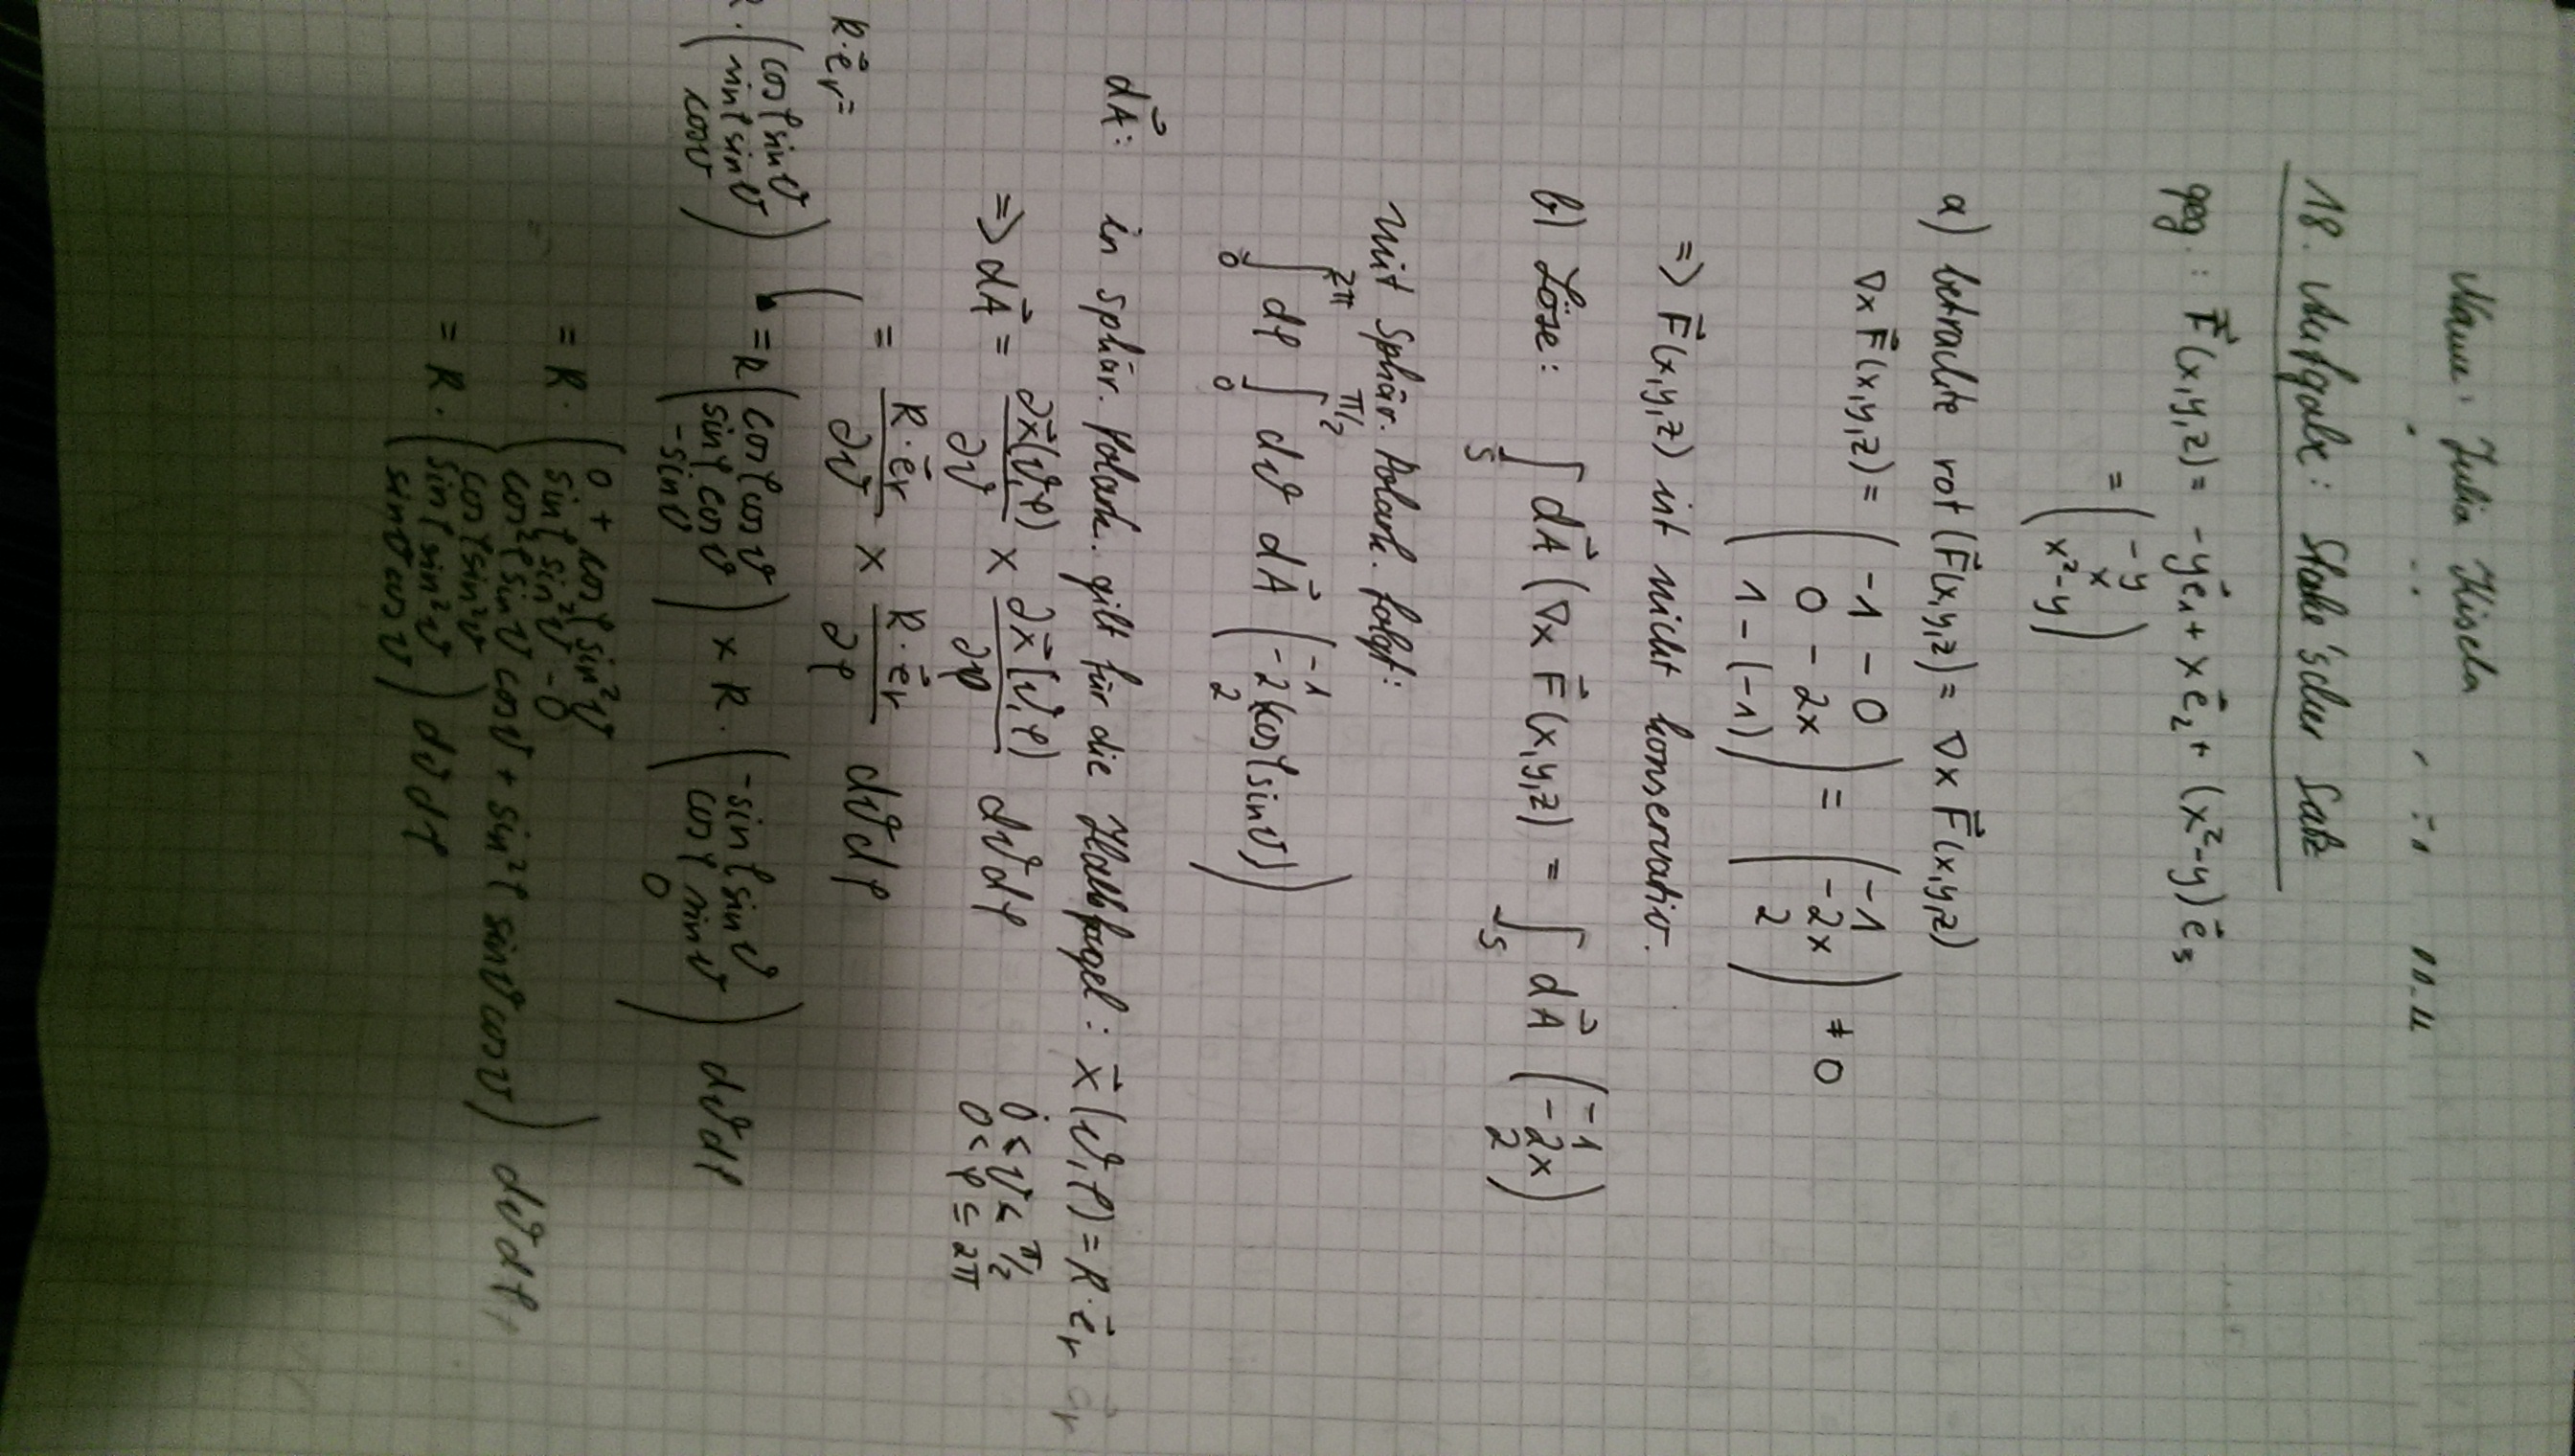 Name: Julia Kisela
18. Aufgabe: Stoke'scher Satz
geg.: F⃗(x,y,z) = -y e⃗₁ + x e⃗₂ + (x²-y) e⃗₃
= ( -y
x
x²-y )
a) betrachte rot(F⃗(x,y,z)) = ∇ x F⃗(x,y,z)
∇ x F⃗(x,y,z) = ( -1 - 0
0 - 2x
1 - (-1) ) = ( -1
-2x
2 ) ≠ 0
=> F⃗(x,y,z) ist nicht konservativ.
b) Löse: ∫_S dA⃗ (∇ x F⃗(x,y,z)) = ∫_S dA⃗ ( -1
-2x
2 )
Mit Sphär. Polark. folgt:
∫₀^2π dφ ∫₀^π/2 dϑ dA⃗ ( -1
-2(cosφ sinϑ)
2 )
dA⃗: in sphär. Polark. gilt für die Halbkugel: x⃗(ϑ,φ) = R·e⃗r
0 < ϑ < π/2
0 < φ ≤ 2π
=> dA⃗ = ∂x⃗(ϑ,φ)/∂ϑ x ∂x⃗(ϑ,φ)/∂φ dϑdφ
= R·e⃗r/∂ϑ x R·e⃗r/∂φ dϑdφ
R·e⃗r =
R·( cosφ sinϑ
sinφ sinϑ
cosϑ )
= R ( cosφ cosϑ
sinφ cosϑ
-sinϑ ) x R·( -sinφ sinϑ
cosφ sinϑ
0 ) dϑdφ
= R·( 0 + cosφ sin²ϑ
sinφ sin²ϑ - 0
cos²φ sinϑ cosϑ + sin²φ sinϑ cosϑ ) dϑdφ
= R·( cosφ sin²ϑ
sinφ sin²ϑ
sinϑ cosϑ ) dϑdφ